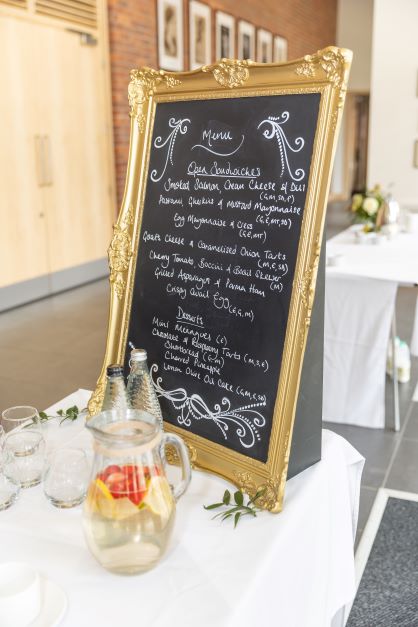 Menu
Open Sandwiches
Smoked Salmon, Cream Cheese & Dill
(G, M, SD, F)
Pastrami, Gherkins & Mustard Mayonnaise
(G, E, MT, SD)
Egg Mayonnaise & Cress
(G, E, MT)
Goats Cheese & Caramelized Onion Tarts
(M, E, SD)
Cherry Tomato, Boccini & Basil Skewer
(M)
Grilled Asparagus & Parma Ham
Crispy Quail Egg (E, G, M)
Desserts
Mini Meringues (E)
Chocolate & Raspberry Tarts (M, S, E)
Shortbread (G, M)
Charred Pineapple
Lemon Olive Oil Cake (G, M, E, SD)